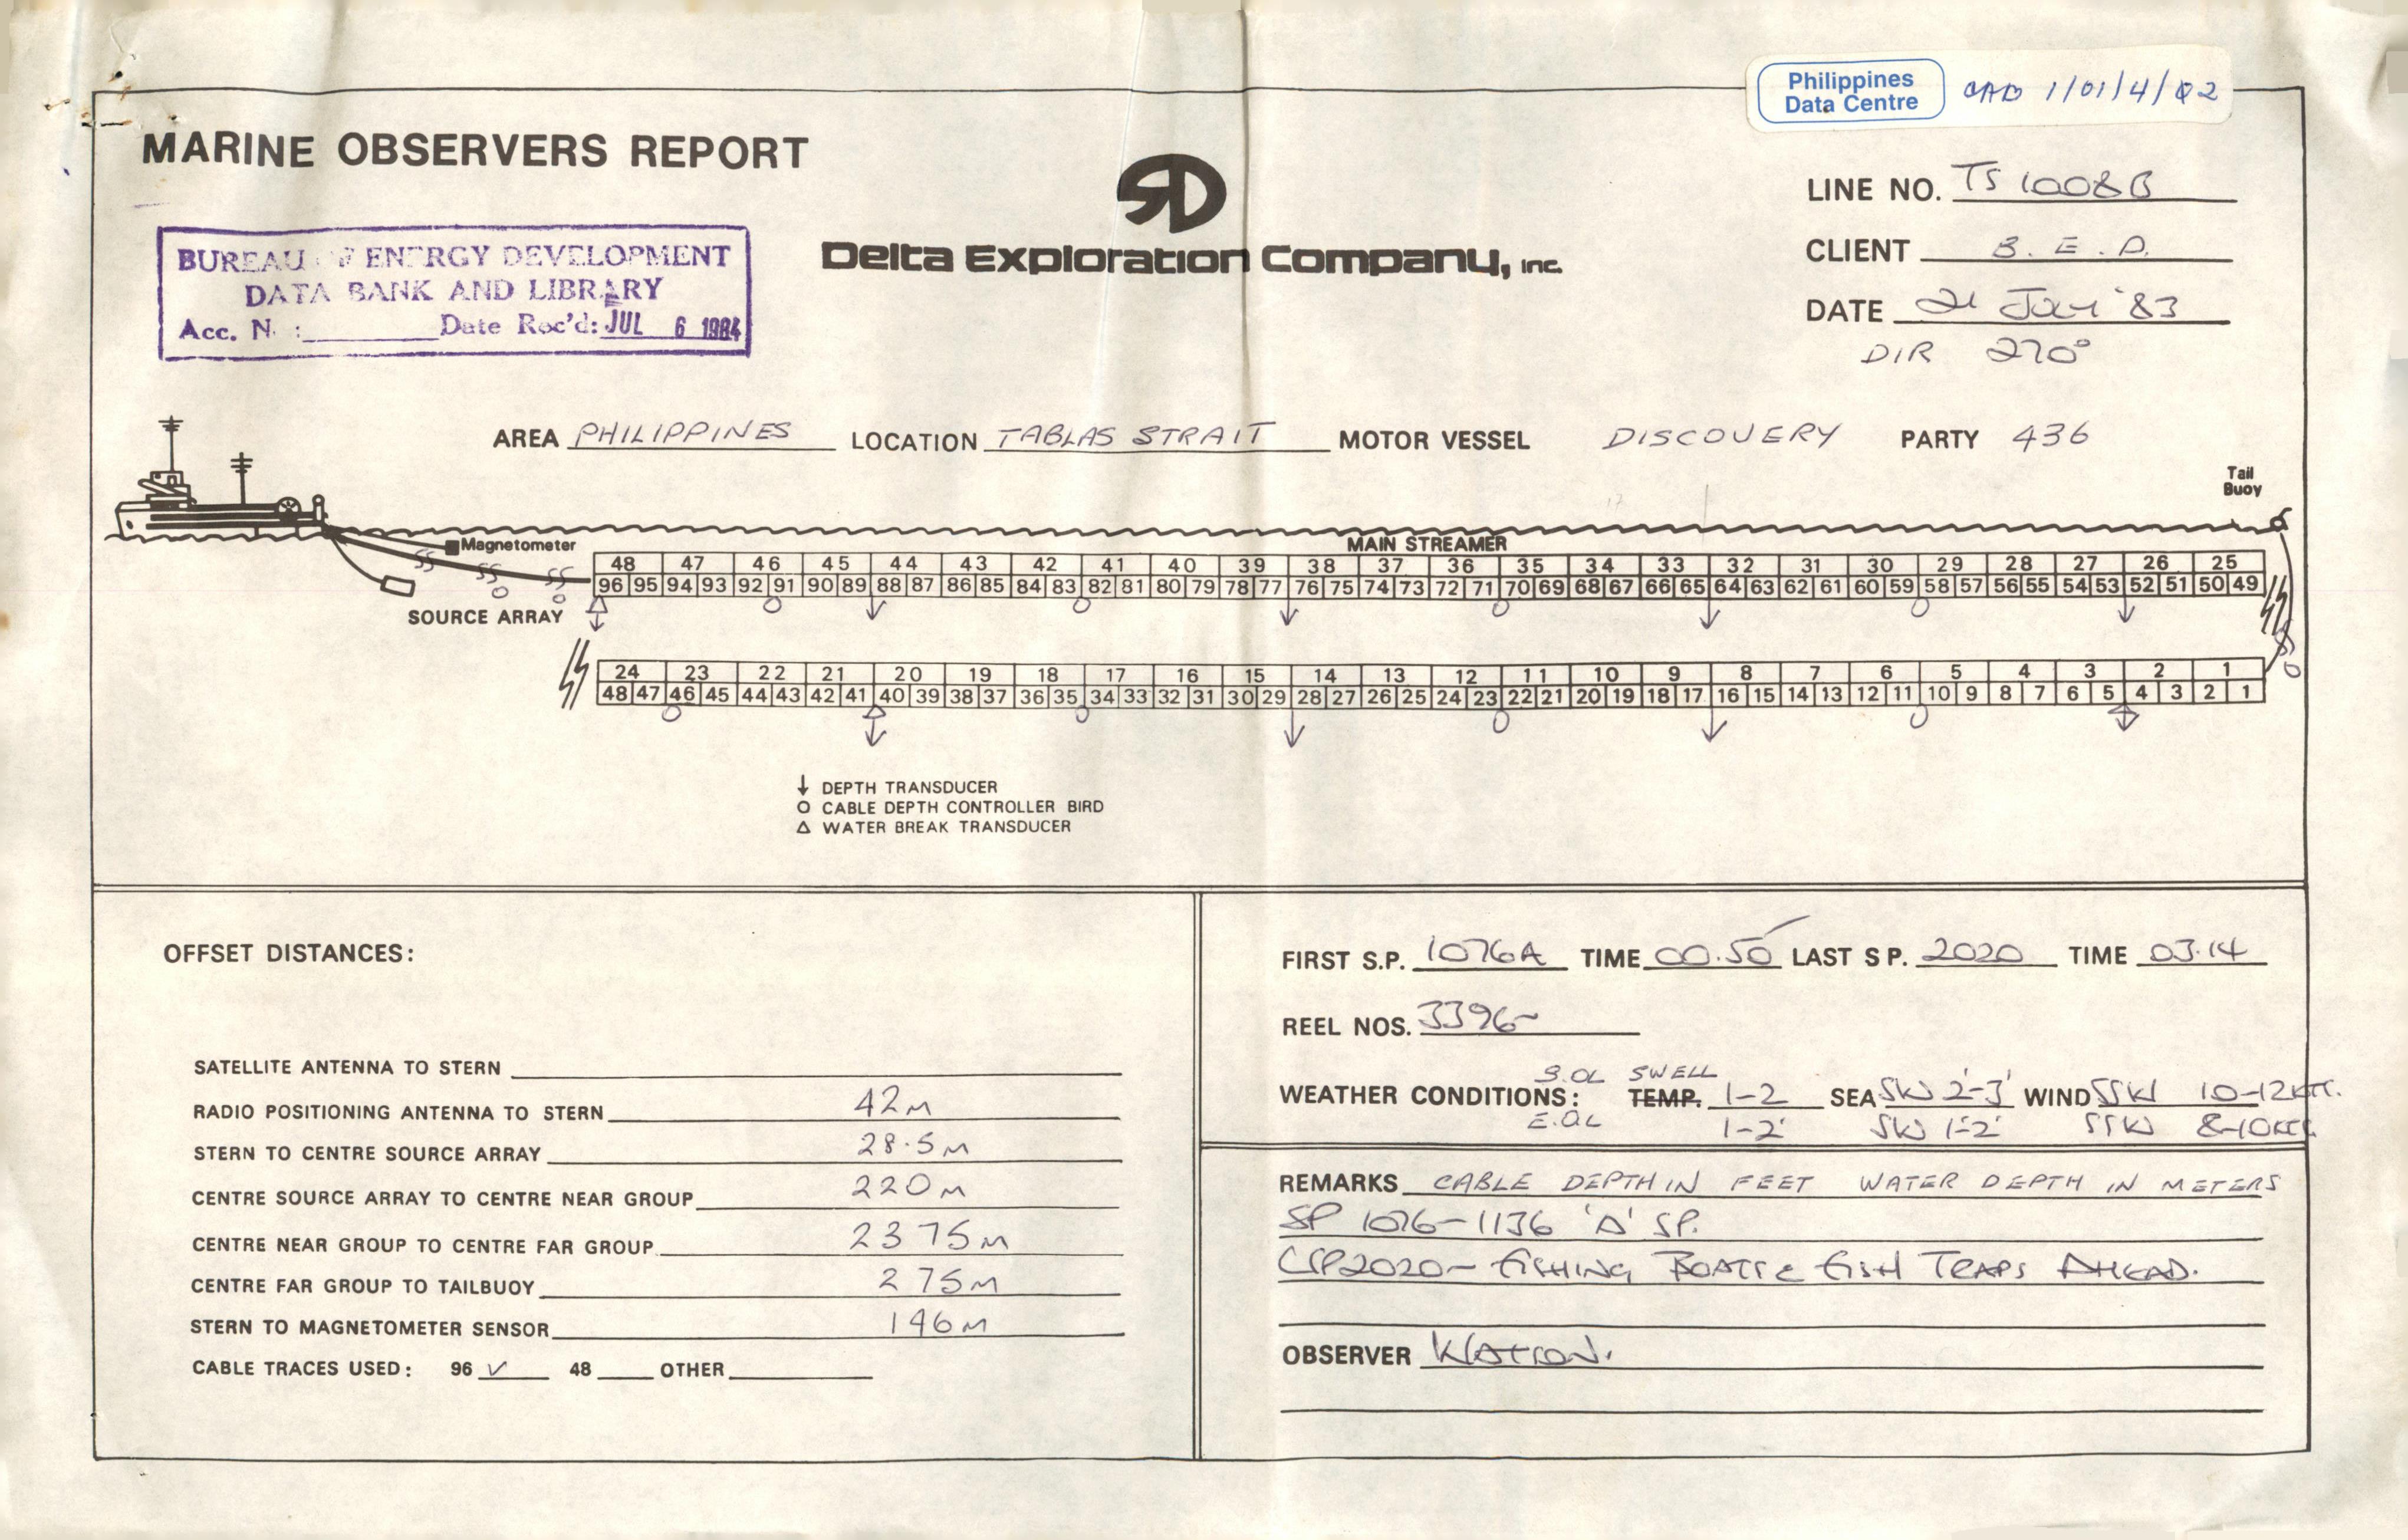 Philippines
Data Centre
CAD 1/01/4/02
MARINE OBSERVERS REPORT
SD
Delta Exploration Company, Inc.
LINE NO. TS 1008B
CLIENT B. E. D.
DATE 21 JAN '83
DIR 270°
BUREAU OF ENERGY DEVELOPMENT
DATA BANK AND LIBRARY
Acc. N : Date Rec'd: JUL 6 1984
AREA PHILIPPINES LOCATION TABLAS STRAIT MOTOR VESSEL DISCOVERY PARTY 436
Tail
Buoy
Magnetometer
MAIN STREAMER
SOURCE ARRAY
48 47 46 45 44 43 42 41 40 39 38 37 36 35 34 33 32 31 30 29 28 27 26 25
96 95 94 93 92 91 90 89 88 87 86 85 84 83 82 81 80 79 78 77 76 75 74 73 72 71 70 69 68 67 66 65 64 63 62 61 60 59 58 57 56 55 54 53 52 51 50 49
24 23 22 21 20 19 18 17 16 15 14 13 12 11 10 9 8 7 6 5 4 3 2 1
48 47 46 45 44 43 42 41 40 39 38 37 36 35 34 33 32 31 30 29 28 27 26 25 24 23 22 21 20 19 18 17 16 15 14 13 12 11 10 9 8 7 6 5 4 3 2 1
↓ DEPTH TRANSDUCER
O CABLE DEPTH CONTROLLER BIRD
△ WATER BREAK TRANSDUCER
OFFSET DISTANCES:
SATELLITE ANTENNA TO STERN
RADIO POSITIONING ANTENNA TO STERN 42M
STERN TO CENTRE SOURCE ARRAY 28.5M
CENTRE SOURCE ARRAY TO CENTRE NEAR GROUP 220M
CENTRE NEAR GROUP TO CENTRE FAR GROUP 2375M
CENTRE FAR GROUP TO TAILBUOY 275M
STERN TO MAGNETOMETER SENSOR 146M
CABLE TRACES USED: 96 ✓ 48 OTHER
FIRST S.P. 1076A TIME 00.50 LAST S P. 2020 TIME 03.14
REEL NOS. 3396~
S.OL SWELL
WEATHER CONDITIONS: TEMP. 1-2 SEA SW 2'-3' WIND SSW 10-12KTS.
E.OL 1-2' SW 1'-2' SSW 8-10KTS
REMARKS CABLE DEPTH IN FEET WATER DEPTH IN METERS
SP 1076-1136 'A' SP.
LSP2020~ FISHING BOATS & FISH TRAPS AHEAD.
OBSERVER WATSON.